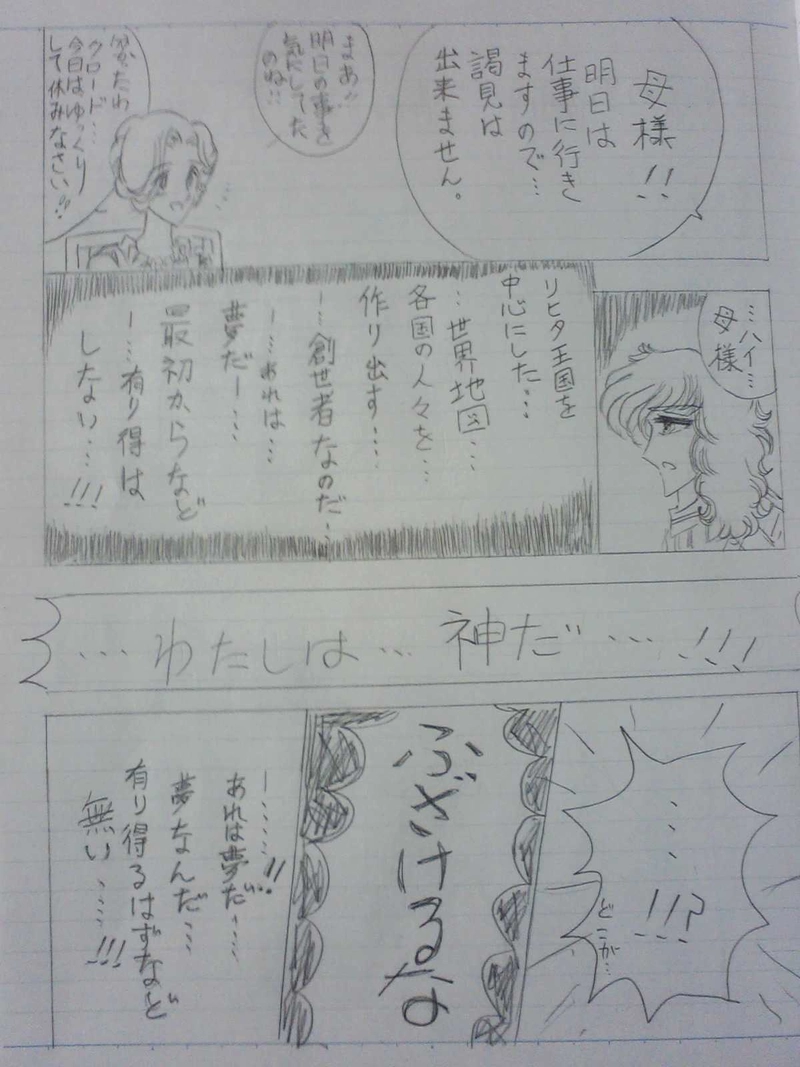 母様!!
明日は
仕事に行き
ますので…
謁見は
出来ません。
まあ!!
明日の事を
気にしてた
のね!!
分かたわ
クロード…
今日はゆっくり
して休みなさい!!
…ハイ…
母様
リヒタ王国を
中心にした…
…世界地図…
各国の人々を…
作り出す…
…創世者なのだ…
…あれは…
夢だー…
最初からなど
ー…有り得は
しない…!!!
…わたしは…神だ…!!!
…!!?
どこが…
ふざけるな
ー……!!
あれは夢だ…
夢なんだ…
有り得るはずなど
無い…!!!